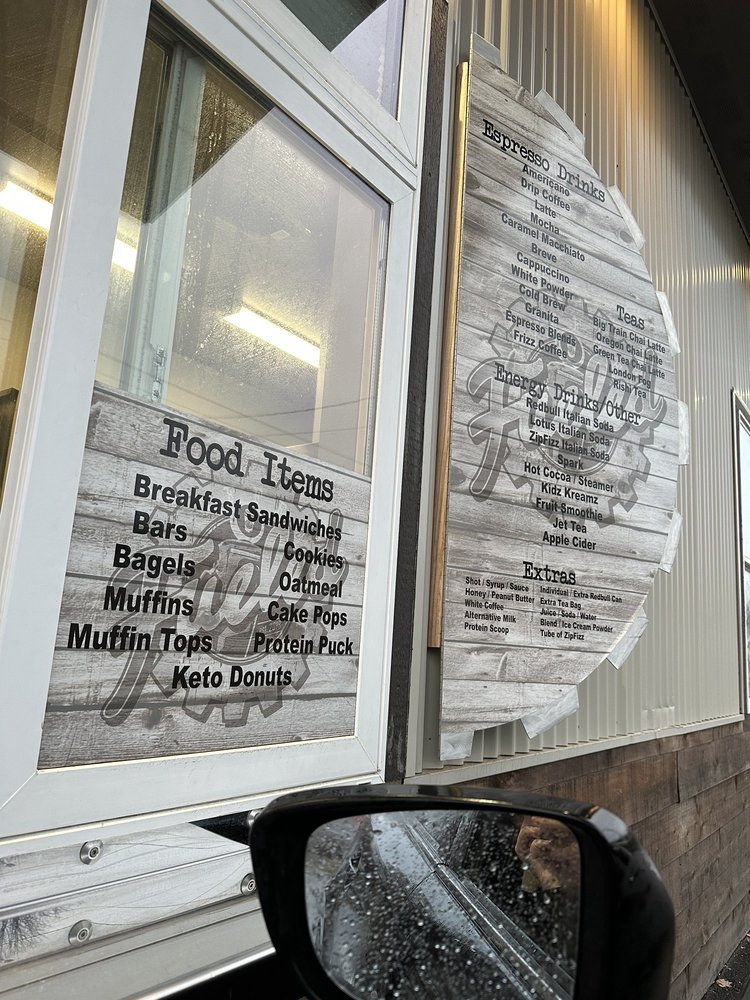 Food Items
Breakfast Sandwiches
Bars
Cookies
Bagels
Oatmeal
Muffins
Cake Pops
Muffin Tops
Protein Puck
Keto Donuts
Espresso Drinks
Americano
Drip Coffee
Latte
Mocha
Caramel Macchiato
Breve
Cappuccino
White Powder
Cold Brew
Granita
Espresso Blends
Frizz Coffee
Teas
Big Train Chai Latte
Oregon Chai Latte
Green Tea Chai Latte
London Fog
Rishi Tea
Energy Drinks/Other
Redbull Italian Soda
Lotus Italian Soda
ZipFizz Italian Soda
Spark
Hot Cocoa / Steamer
Kidz Kreamz
Fruit Smoothie
Jet Tea
Apple Cider
Extras
Shot / Syrup / Sauce
Honey / Peanut Butter
White Coffee
Alternative Milk
Protein Scoop
Individual / Extra Redbull Can
Extra Tea Bag
Juice / Soda / Water
Blend / Ice Cream Powder
Tube of ZipFizz